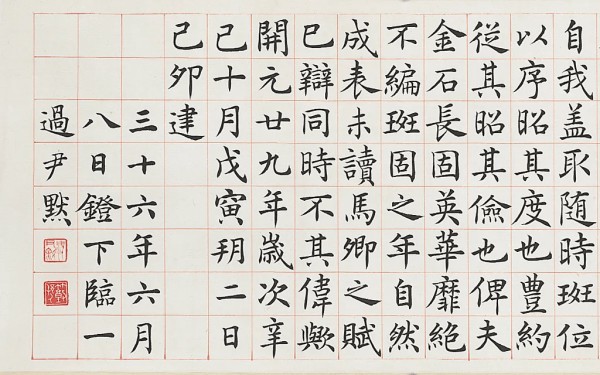 自我盖取随時班位
以序昭其度也豊約
從其昭其儉也俾夫
金石長固英華靡絕
不編班固之年自然
成表未讀馬卿之賦
已辯同時不其偉歟
開元廿九年歲次辛
巳十月戊寅朔二日
己卯建
三十六年六月
八日鐙下臨一
過尹默